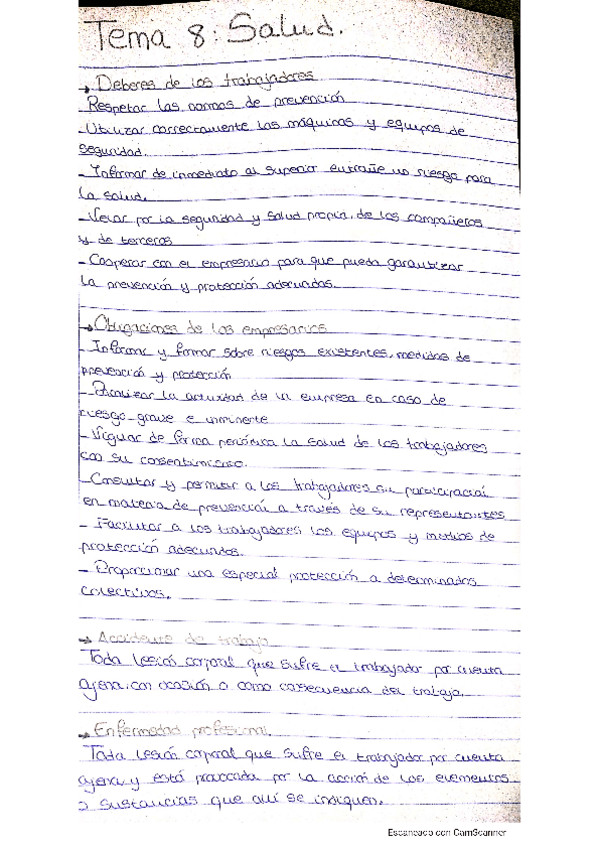 Tema 8: Salud.
→ Deberes de los trabajadores
Respetar las normas de prevención
- Utilizar correctamente las máquinas y equipos de
seguridad.
- Informar de inmediato al superior entrañe un riesgo para
la salud.
- Velar por la seguridad y salud propia, de los compañeros
y de terceros
- Cooperar con el empresario para que pueda garantizar
la prevención y protección adecuadas.
→ Obligaciones de los empresarios
- Informar y formar sobre riesgos existentes, medidas de
prevención y protección
- Paralizar la actividad de la empresa en caso de
riesgo grave e inminente
- Vigilar de forma periódica la salud de los trabajadores
con su consentimiento.
- Consultar y permitir a los trabajadores su participación
en materia de prevención a través de su representantes
- Facilitar a los trabajadores los equipos y medios de
protección adecuados.
- Proporcionar una especial protección a determinados
colectivos.
→ Accidente de trabajo
Toda lesión corporal que sufre el trabajador por cuenta
ajena, con ocasión o como consecuencia del trabajo.
→ Enfermedad profesional.
Toda lesión corporal que sufre el trabajador por cuenta
ajena y está provocada por la acción de los elementos
o sustancias que allí se indiquen.
Escaneado con CamScanner